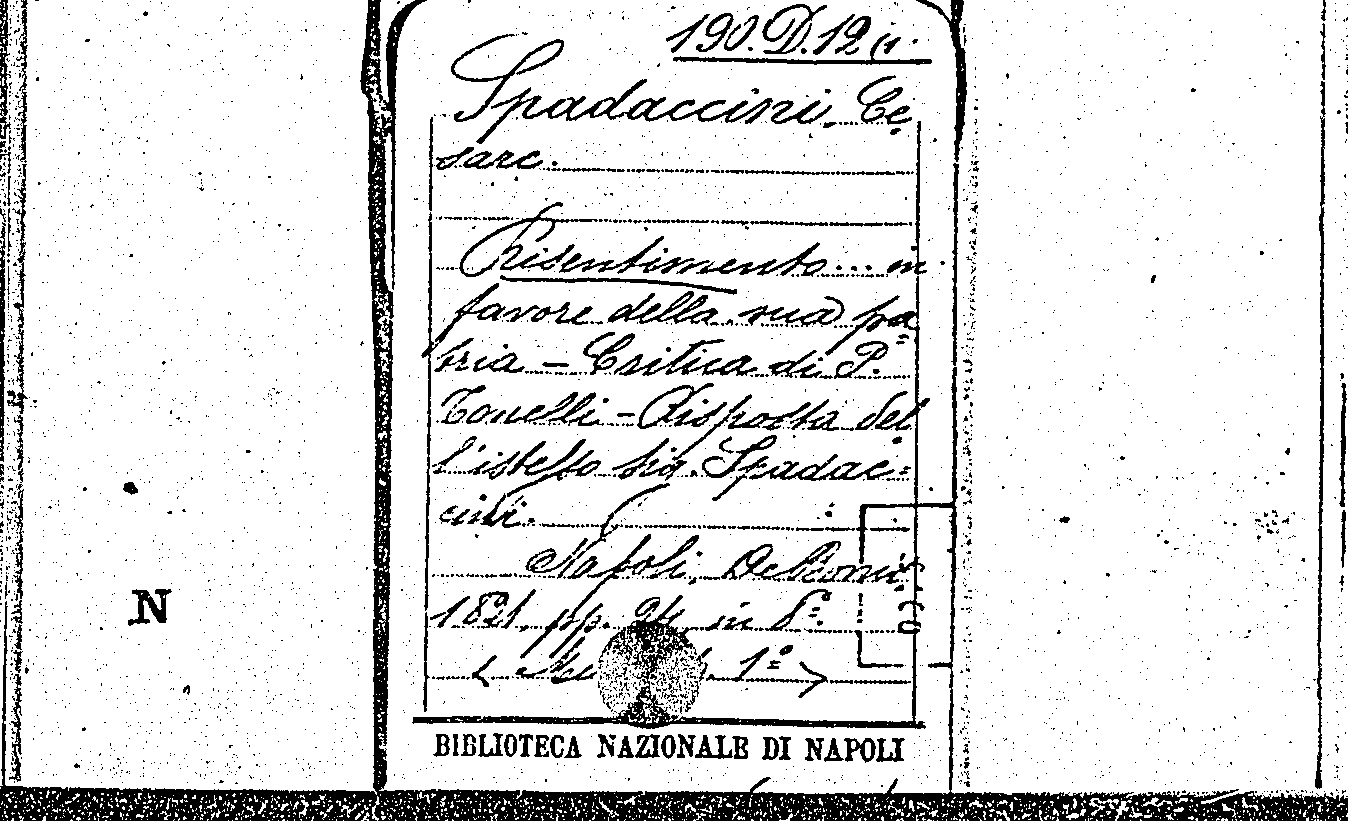 190. D. 12
Spadaccini, Ce=
sare.
Risentimento... in
favore della sua pa=
tria – Critica di P.
Tonelli – Risposta del
l'istesso sig. Spadac=
cini.
Napoli, De Bonis
1821, pp. 24, in 8º.
1º
N
BIBLIOTECA NAZIONALE DI NAPOLI